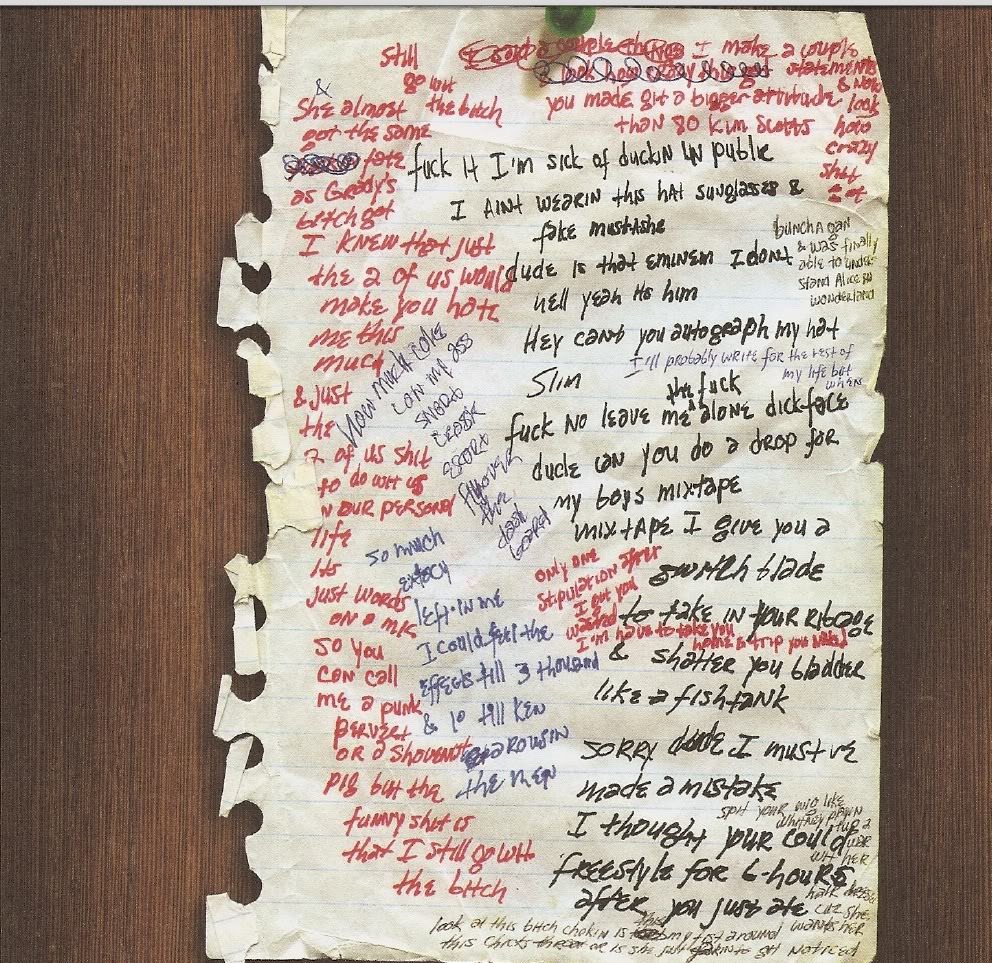 Still
go wit
the bitch
I said a couple things I make a couple
look how crazy this got statements
& now
look
how
crazy
shit
got
you made git a bigger attitude
than 80 Kim Scotts
&
She almost
got the same
fate
as Grady's
bitch got
I knew that just
the 2 of us would
make you hate
me this
much
& just
the
2 of us shit
to do wit us
in our personal
life
its
just words
on a mic
so you
can call
me a punk
pervert
or a shovenist
pig but the
funny shit is
that I still go wit
the bitch
fuck it I'm sick of duckin in public
I aint wearin this hat sunglasses &
fake mustashe
dude is that eminem I dont
hell yeah its him
Hey cant you autograph my hat
Slim
the fuck
fuck no leave me ^ alone dickface
dude can you do a drop for
my boys mixtape
mixtape I give you a
switch blade
to take in your ribcage
& shatter you bladder
like a fishtank
sorry dude I must've
made a mistake
I thought your could
freestyle for 6-hours
after you just ate
buncha
& was finally
able to under
stand Alice in
wonderland
I'll probably write for the rest of
my life but
when
how much coke
can my ass
snort
crack
escort
the
dash
board
so much
extacy
left in me
I could feel the
effects till 3 thousand
& 10 till Ken
arousin
the men
only one
stipulation after
I got you
I'm have to take you
home
spit your wig like
whitney
wit her
hair
cuz she
wants her
look at this bitch chokin is this my fist around
this chicks throat or is she just to get noticed